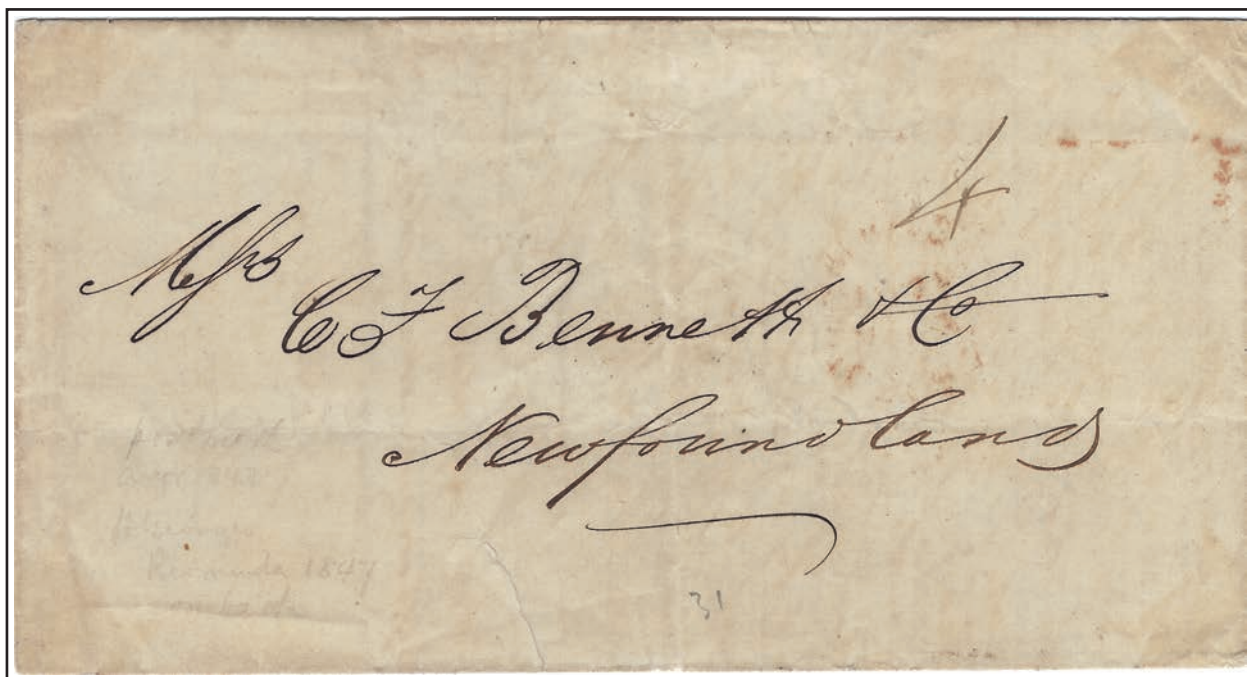 4
Messrs
C F Bennett & Co
Newfoundland
Bermuda 1847
31